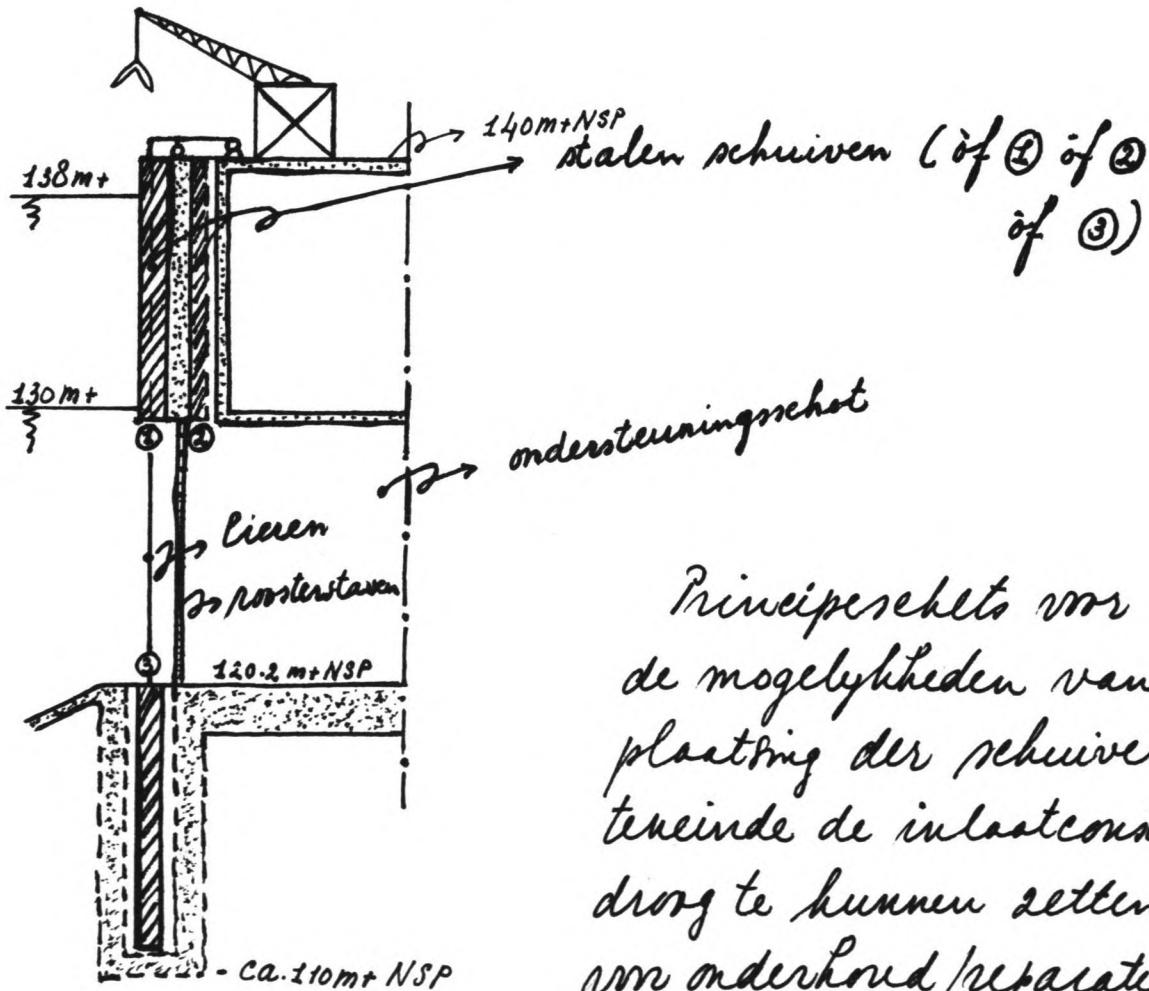 140m+NSP
stalen schuiven (òf ① òf ②
òf ③)
138m+
130m+
① ②
ondersteuningsschot
lieren
roosterstaven
③
120.2 m+NSP
Principeschets voor
de mogelykheden van
plaatsing der schuive
teneinde de inlaatcons
droog te kunnen zetten
voor onderhoud/reparate
- ca. 110m+ NSP